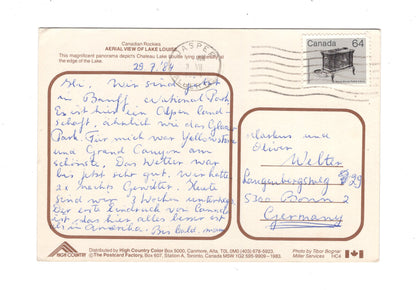 Canadian Rockies
AERIAL VIEW OF LAKE LOUISE
This magnificent panorama depicts Chateau Lake Louise lying
the edge of the Lake.
29.7.84
JASPER
Canada 64
Wir sind jetzt
in Banff, National Park
Es ist hier ein Alpen Land-
schaft, ähnlich wie das Glacier
Park. Für mich war Yellowstone
und Grand Canyon am
schönsten. Das Wetter war
bis jetzt sehr gut, wir hatten
2x nachts Gewitter. Heute
sind wir 3 Wochen unterwegs.
Der erste Eindruck von Canada
ist, das hier alles besser ist
als in Amerika. Bis bald
Markus und
Oliver
Welter
Lengsbergsweg 29
5300 Bonn 2
Germany
HIGH COUNTRY
Distributed by High Country Color Box 5000, Canmore, Alta. T0L 0M0 (403) 678-5923.
© The Postcard Factory, Box 607, Station A, Toronto, Canada M5W 1G2 595-9909-1983.
Photo by Tibor Bognar
Miller Services HC4